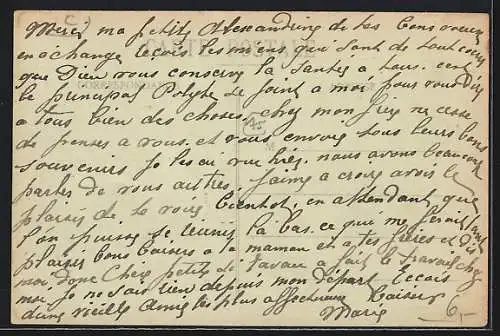 Merci ma petite Alexandrine de tes bons vœux
en échange recois les miens qui sont de tout cœur
que Dieu vous conserve la santée a tous. cest
le principal Polyte se joint a moi pour vous dire
a tous bien des choses. chez mon frère ne cesse
de penses a vous. et vous envoie tous leurs bons
souvenirs je les ai vue hier. nous avons beaucoup
parles de vous autres j'aime a croire avoir le
plaisir de te voir bientot. en attendant que
l'on puisse se reunir la bas. ce qui me ferait tant
plaisir bons baisers a ta maman et a tes frères et dis
moi donc chere petite si tavau a fait le travail chez
moi je ne sais rien depuis mon départ recois
d'une vieille amie les plus affectueux baiser
Marie
CARTE POSTALE
6,-